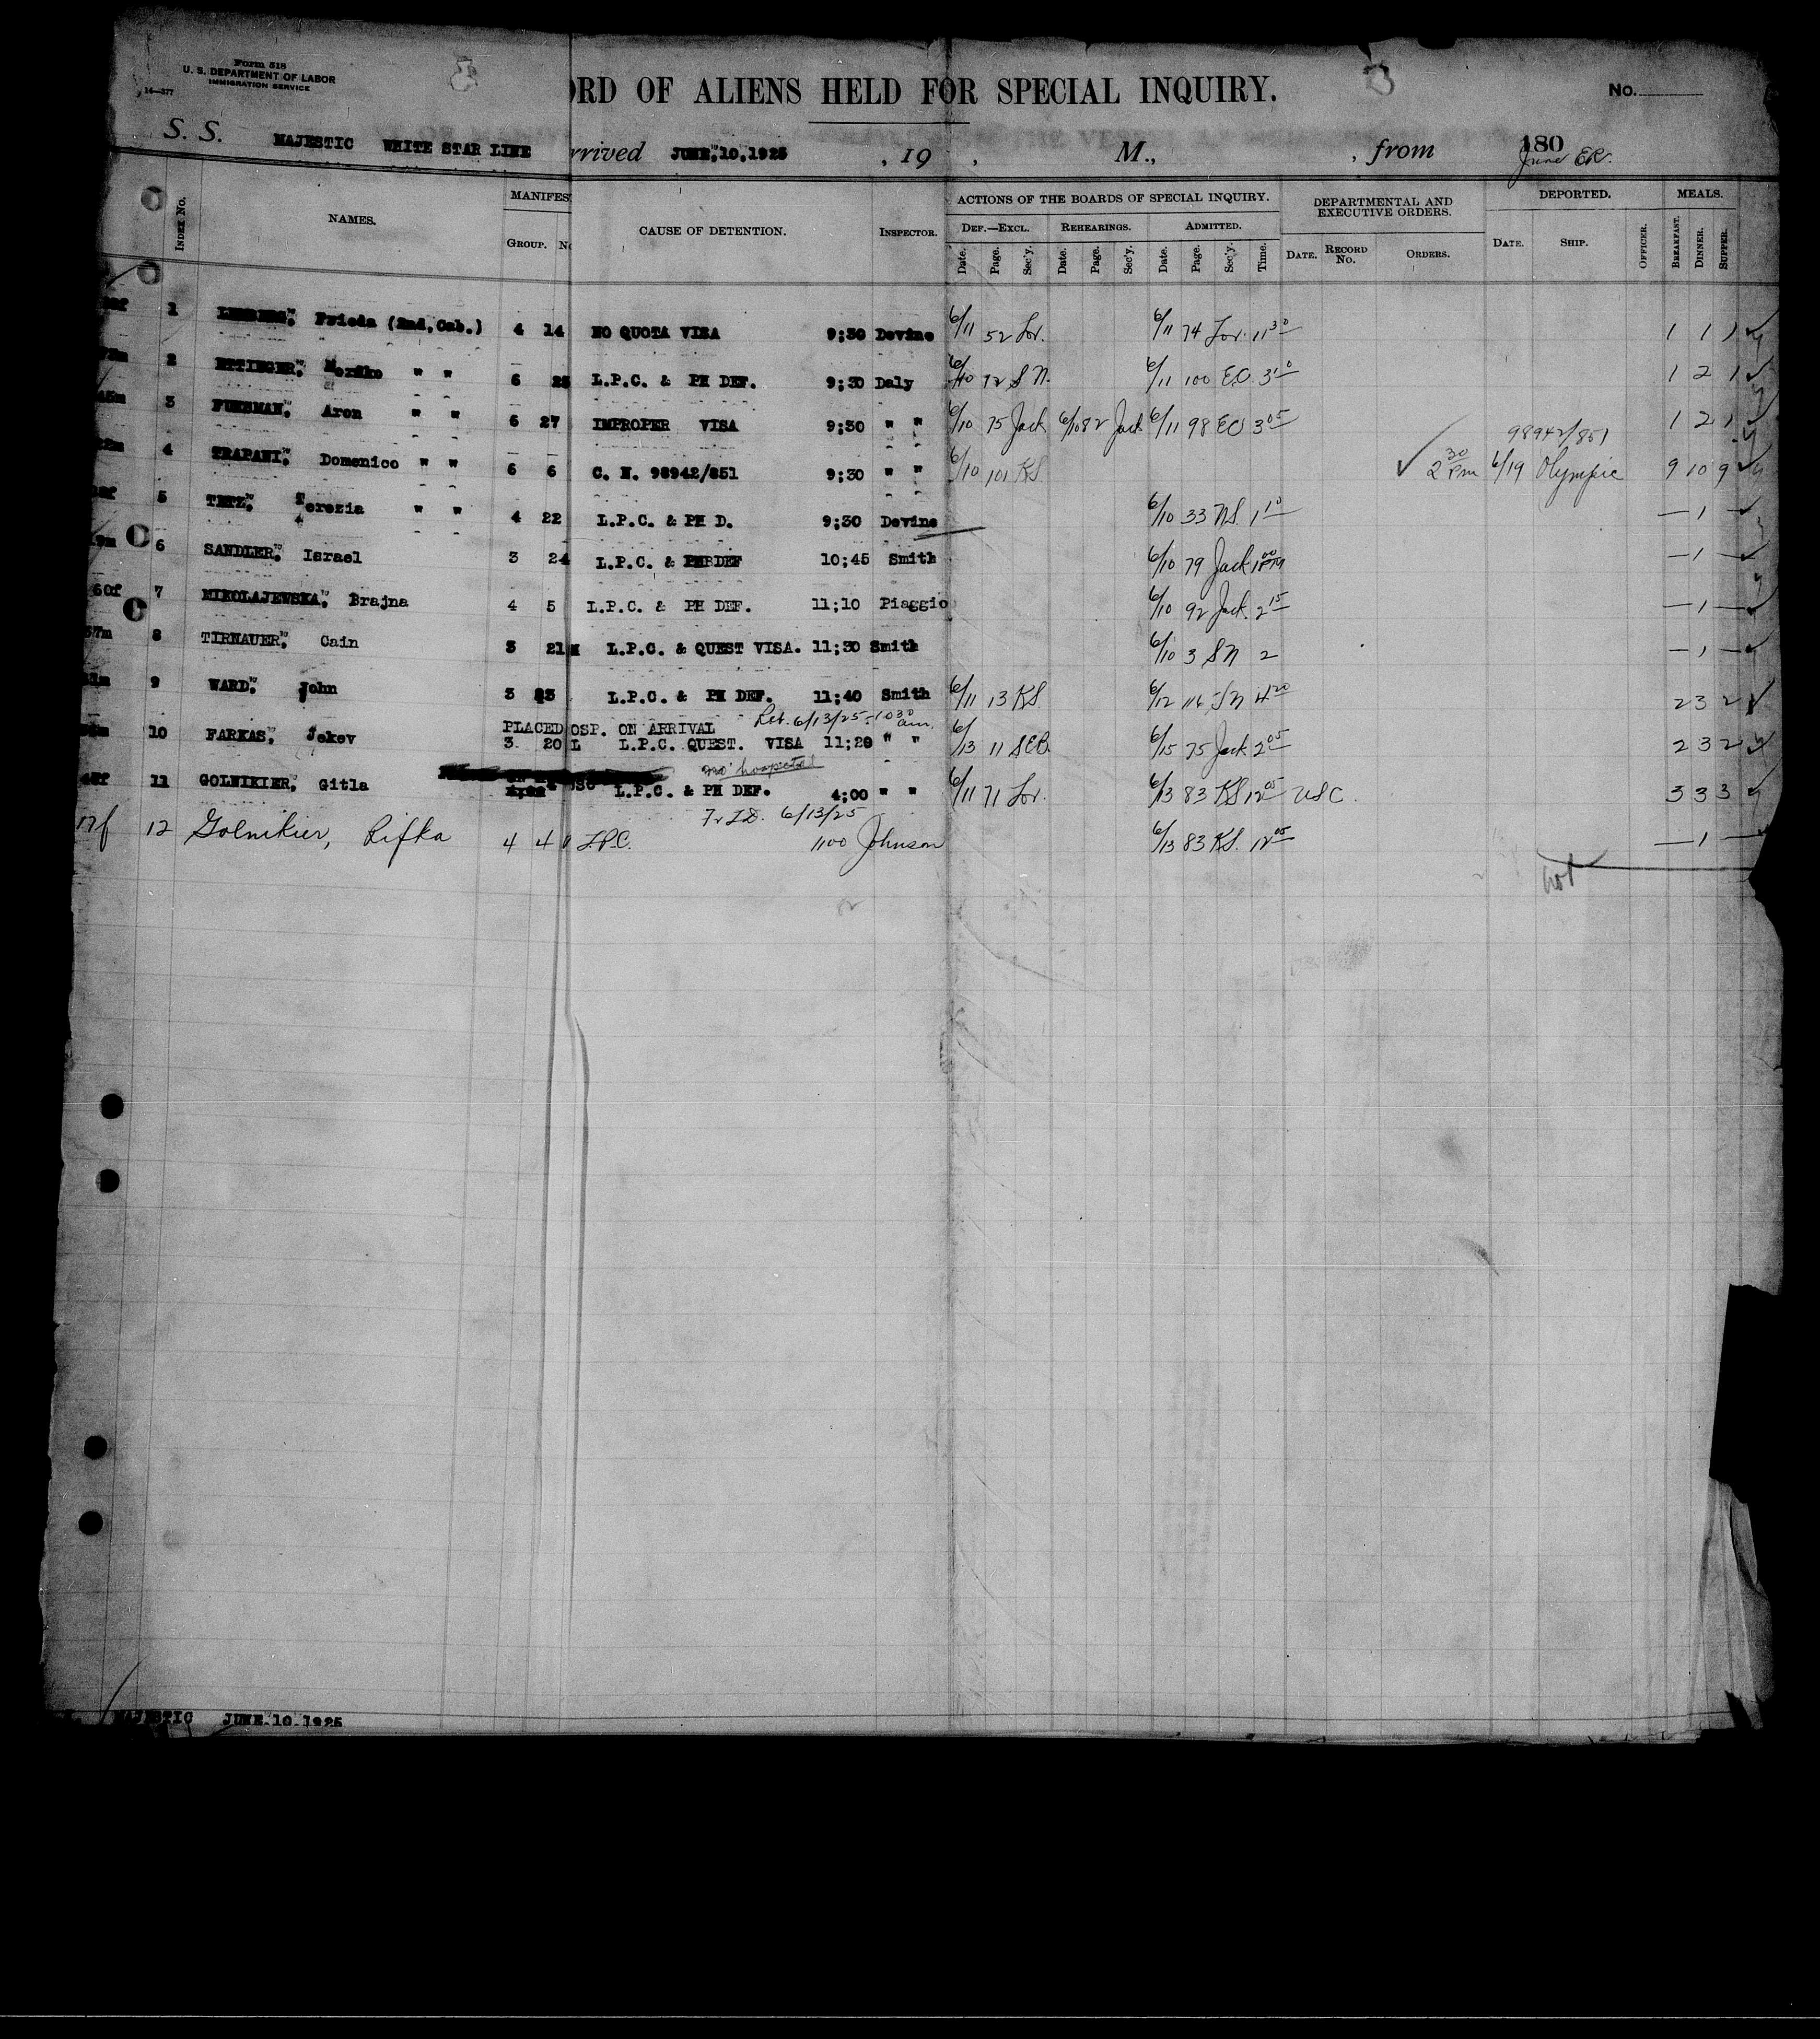 Form 518
U. S. DEPARTMENT OF LABOR
IMMIGRATION SERVICE
14—377
ORD OF ALIENS HELD FOR SPECIAL INQUIRY.
No.
S. S. MAJESTIC WHITE STAR LINE rrived JUNE,10,1925 , 19 , M., , from 180
June ER.
INDEX No. NAMES. MANIFES GROUP. No CAUSE OF DETENTION. INSPECTOR.
ACTIONS OF THE BOARDS OF SPECIAL INQUIRY. DEPARTMENTAL AND EXECUTIVE ORDERS. DEPORTED. MEALS.
DEF.—EXCL. REHEARINGS. ADMITTED.
Date. Page. Sec'y. Date. Page. Sec'y. Date. Page. Sec'y. Time. DATE. RECORD No. ORDERS. DATE. SHIP. OFFICER. BREAKFAST. DINNER. SUPPER.
1 Frieda (2nd, Cab.) 4 14 NO QUOTA VISA 9;30 Devine 6/11 52 Lor. 6/11 74 Lor. 11 30 1 1 1
2 ETTINGER, " " 6 25 L.P.C. & PH DEF. 9;30 Daly 6/10 72 S N. 6/11 100 E.O. 3 10 1 2 1
3 Aron " " 6 27 IMPROPER VISA 9;30 " " 6/10 75 Jack 6/10 82 Jack 6/11 98 EO 3 05 1 2 1
98942/851
4 TRAPANI, Domenico " " 6 6 C. N. 98942/851 9;30 " " 6/10 101 KS 2 30 Pm 6/19 Olympic 9 10 9
5 TETZ, Terezia " " 4 22 L.P.C. & PH D. 9;30 Devine 6/10 33 N.S. 1 10 — 1 —
6 SANDLER, Israel 3 24 L.P.C. & DEF 10;45 Smith 6/10 79 Jack 1 00 PM — 1 —
60f 7 MIKOLAJEWSKA, Brajna 4 5 L.P.C. & PH DEF. 11;10 Piaggio 6/10 92 Jack. 2 15 — 1 —
57m 8 TIRNAUER, Cain 3 21 L.P.C. & QUEST VISA. 11;30 Smith 6/10 3 S N 2 — 1 —
9 WARD, John 3 L.P.C. & PH DEF. 11;40 Smith 6/11 13 KS 6/12 116 S N 4 20 2 3 2
PLACED OSP. ON ARRIVAL Ret. 6/13/25 - 10 30 am.
10 FARKAS, Jekev 3 20 L L.P.C. QUEST. VISA 11;20 " " 6/13 11 SEB. 6/15 75 Jack 2 05 2 3 2
no hospital
11 GOLNIKIER, Gitla L.P.C. & PH DEF. 4;00 " " 6/11 71 Lor. 6/13 83 KS 12 05 USC. 3 3 3
6/13/25
17f 12 Golnikier, Rifka 4 4 L.P.C. 1100 Johnson 6/13 83 KS. 12 05 — 1 —
MAJESTIC JUNE.10.1925